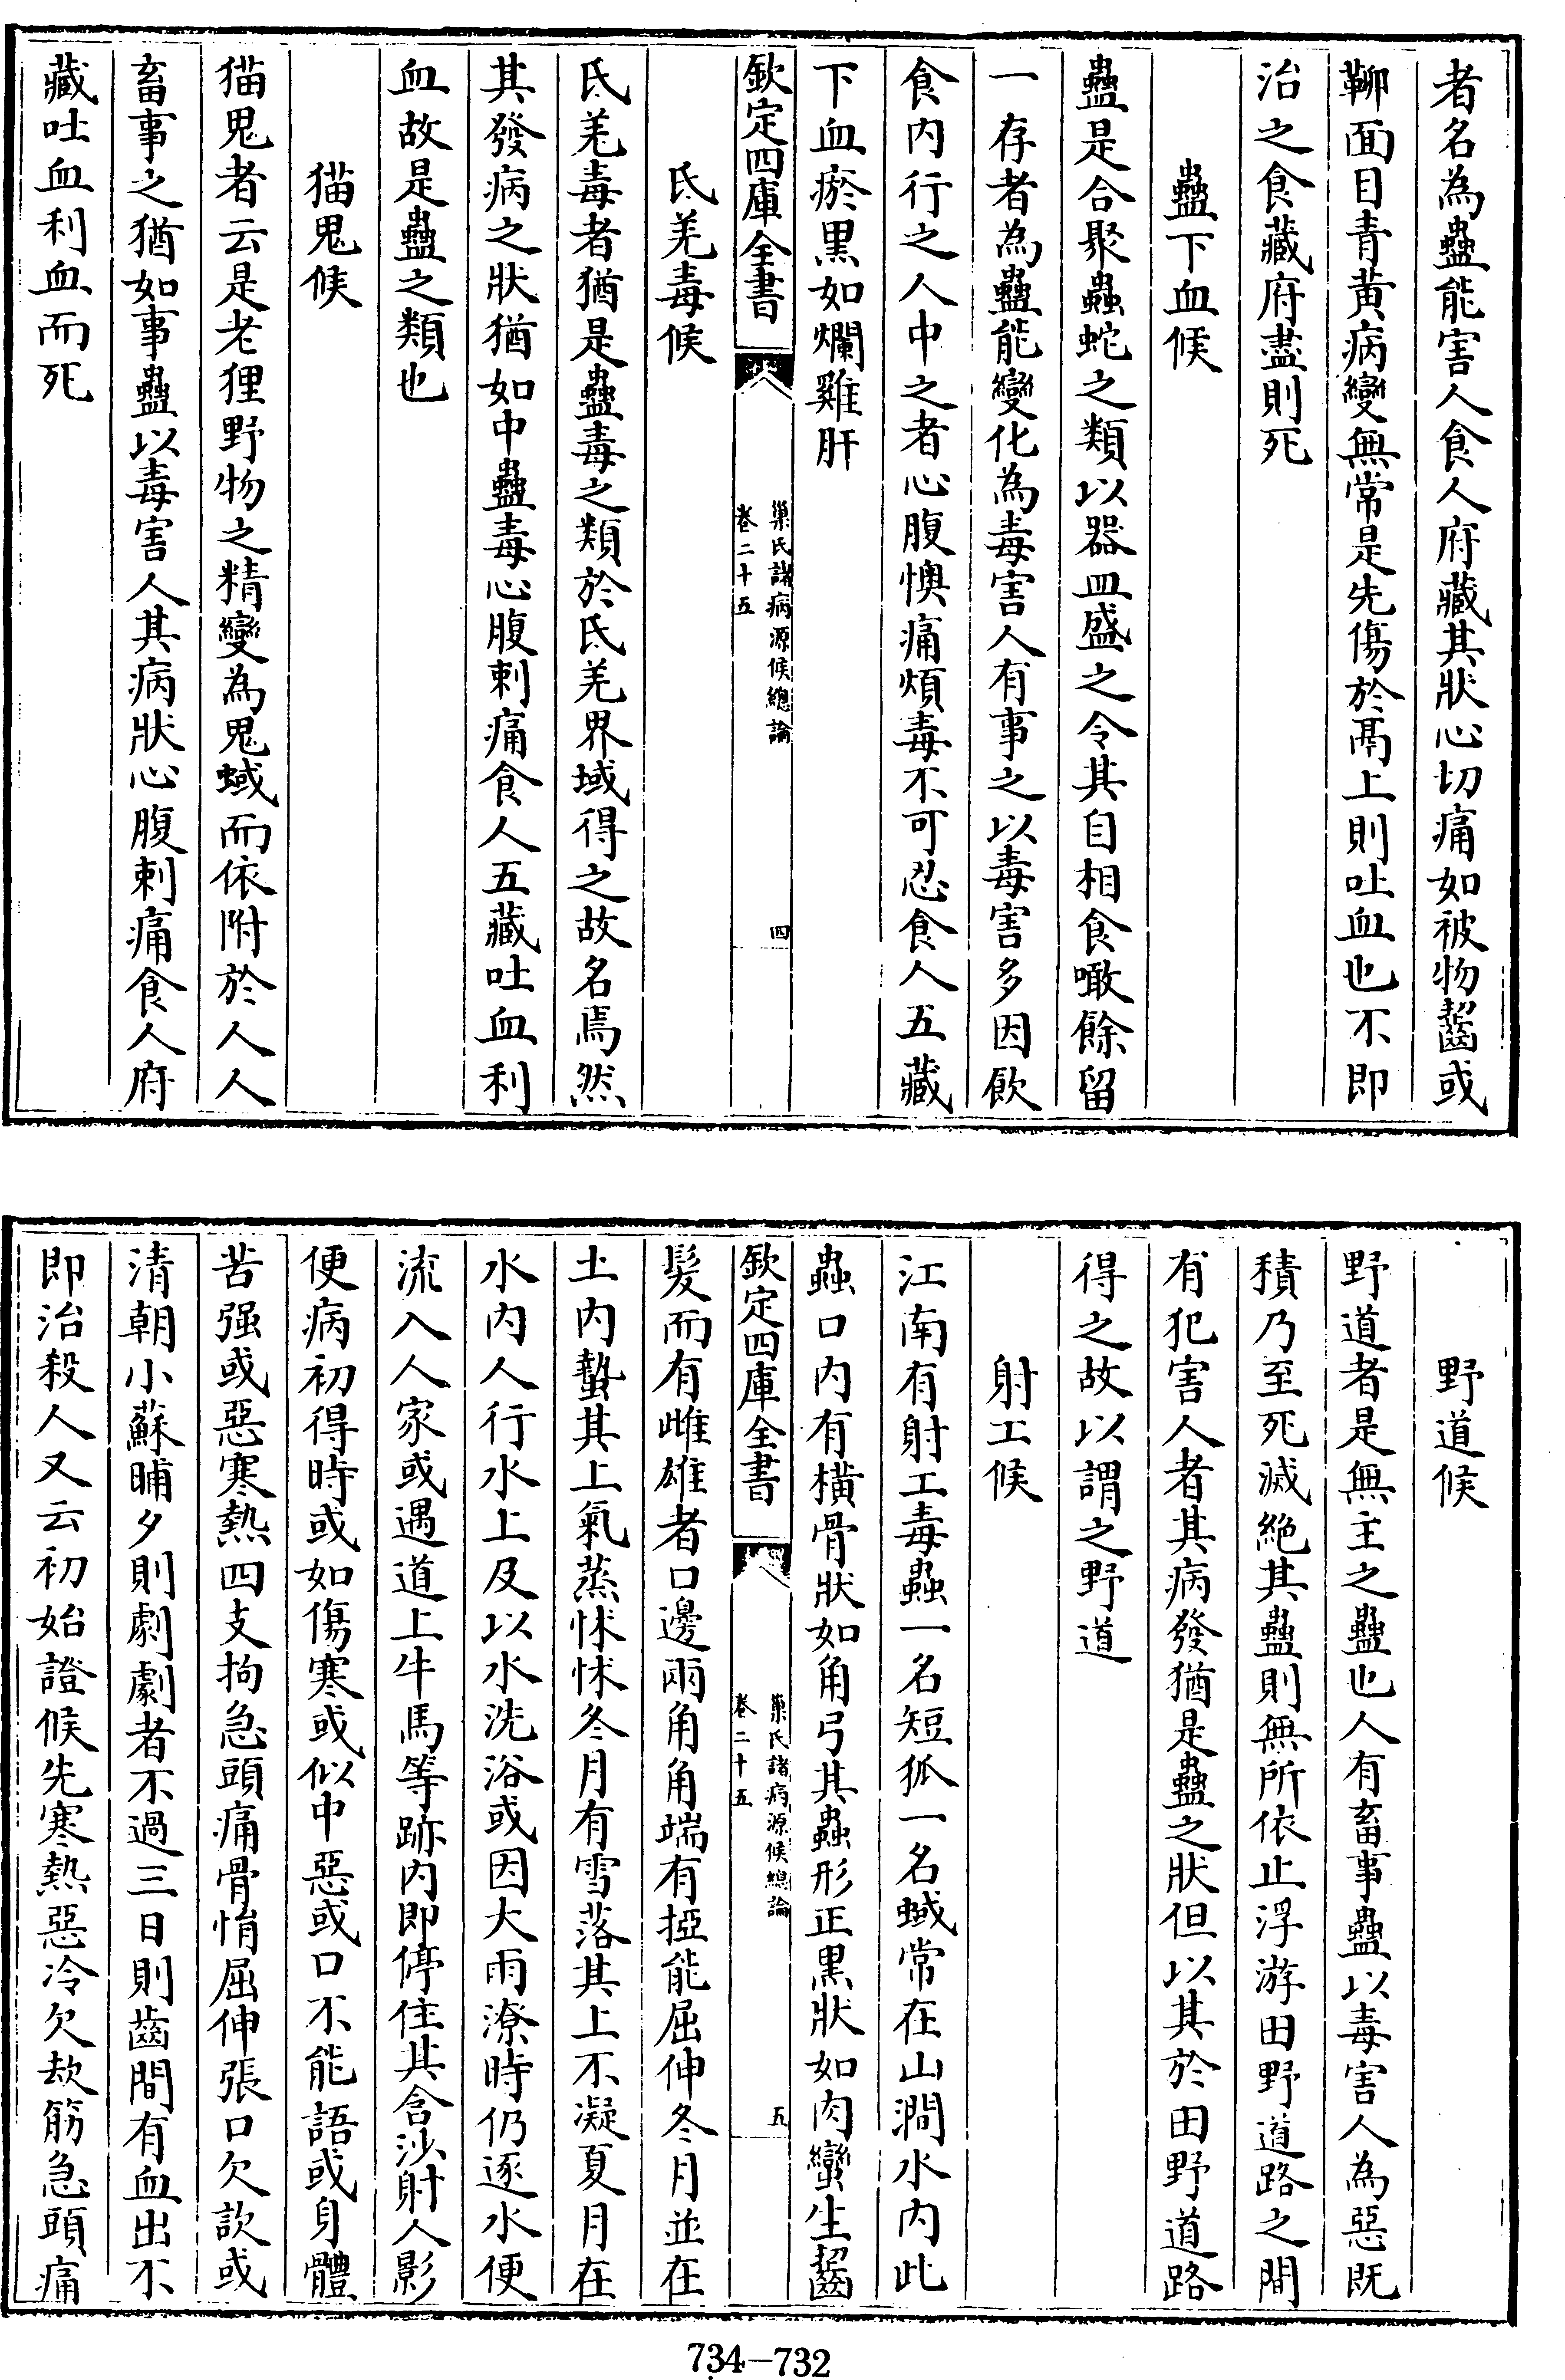 者名為蠱能害人食人府藏其狀心切痛如被物齧或
鞹面目青黃病變無常是先傷於鬲上則吐血也不即
治之食藏府盡則死
蠱下血候
蠱是合聚蟲蛇之類以器皿盛之令其自相食噉餘留
一存者為蠱能變化為毒害人有事之以毒害多因飲
食内行之人中之者心腹懊痛煩毒不可忍食人五藏
下血瘀黑如爛雞肝
欽定四庫全書
巢氏諸病源候總論
卷二十五
四
氐羌毒候
氐羌毒者猶是蠱毒之類於氐羌界域得之故名焉然
其發病之狀猶如中蠱毒心腹刺痛食人五藏吐血利
血故是蠱之類也
猫鬼候
猫鬼者云是老狸野物之精變為鬼蜮而依附於人人
畜事之猶如事蠱以毒害人其病狀心腹刺痛食人府
藏吐血利血而死
野道候
野道者是無主之蠱也人有畜事蠱以毒害人為惡既
積乃至死滅絕其蠱則無所依止浮游田野道路之間
有犯害人者其病發猶是蠱之狀但以其於田野道路
得之故以謂之野道
射工候
江南有射工毒蟲一名短狐一名蜮常在山澗水内此
蟲口内有橫骨狀如角弓其蟲形正黑狀如肉蠻生齧
欽定四庫全書
巢氏諸病源候總論
卷二十五
五
髮而有雌雄者口邊兩角角端有掗能屈伸冬月並在
土内蟄其上氣蒸休休冬月有雪落其上不凝夏月在
水内人行水上及以水洗浴或因大雨潦時仍逐水便
流入人家或遇道上牛馬等跡内即停住其含沙射人影
便病初得時或如傷寒或似中惡或口不能語或身體
苦强或惡寒熱四支拘急頭痛骨悁屈伸張口欠欬或
清朝小蘇晡夕則劇劇者不過三日則齒間有血出不
即治殺人又云初始證候先寒熱惡冷欠㰦筋急頭痛
734-732